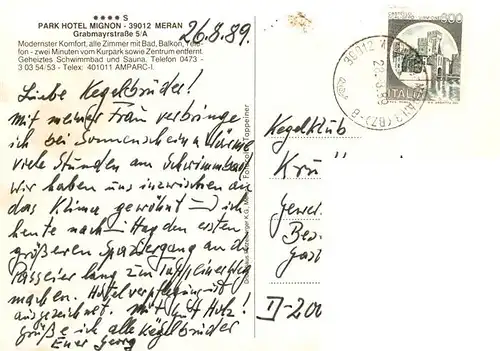 S
PARK HOTEL MIGNON - 39012 MERAN
Grabmayrstraße 5/A
Modernster Komfort, alle Zimmer mit Bad, Balkon, Tele-
fon - zwei Minuten vom Kurpark sowie Zentrum entfernt.
Geheiztes Schwimmbad und Sauna. Telefon 0473 -
3 03 54/53 - Telex: 401011 AMPARC-I.
26.8.89.
Liebe Kegelbrüder!
Mit meiner Frau verbringe
ich bei Sonnenschein u. Wärme
viele Stunden am Schwimmbad
Wir haben uns inzwischen an
das Klima gewöhnt ich
heute nach Mittag den ersten
größeren Spaziergang an der
Passeier lang zum Tappeinerweg
machen. Hotelverpflegung ist
ausgezeichnet. Mit gut Holz!
grüße ich alle Kegelbrüder
Euer Georg
Foto Tappeiner
ITALIA
39012
Kegelklub
Krü
Gewer
Be
Gast
D-200